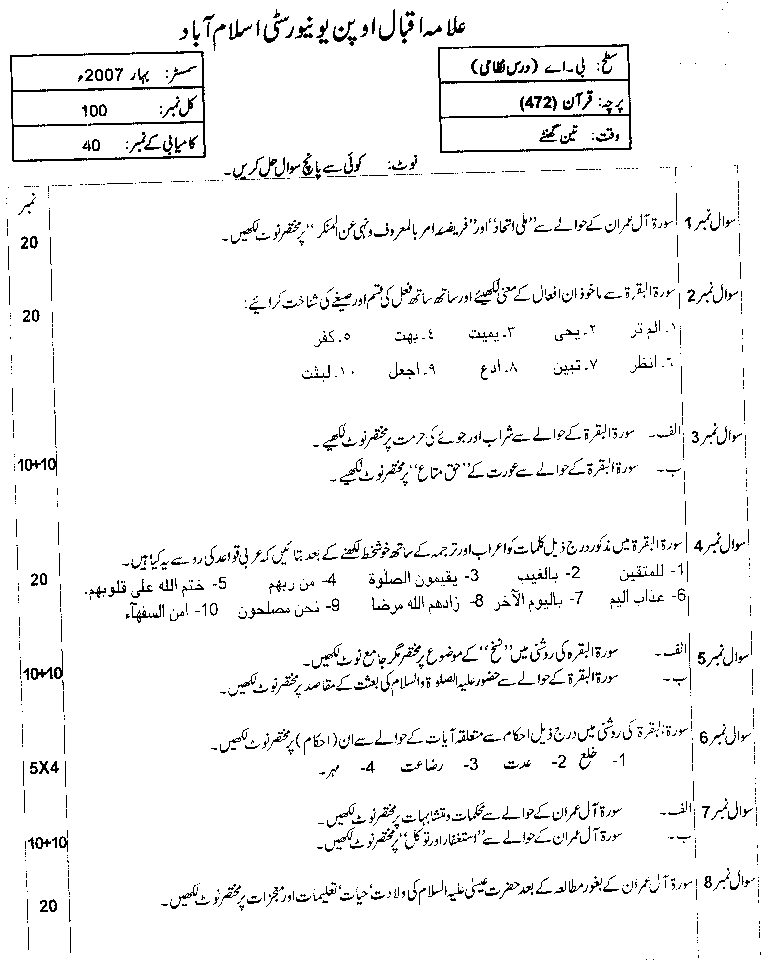 علامہ اقبال اوپن یونیورسٹی اسلام آباد
سطح: بی۔اے (درس نظامی)
پرچہ: قرآن (472)
وقت: تین گھنٹے
سمسٹر: بہار 2007ء
کل نمبر: 100
کامیابی کے نمبر: 40
نوٹ: کوئی سے پانچ سوال حل کریں۔
نمبر
سوال نمبر 1 سورۃ آل عمران کے حوالے سے ”ملی اتحاد“ اور ”فریضہ امر بالمعروف ونہی عن المنکر“ پر مختصر نوٹ لکھیں۔ 20
سوال نمبر 2 سورۃ البقرۃ سے ماخوذ ان افعال کے معنی لکھیئے اور ساتھ ساتھ فعل کی قسم اور صیغے کی شناخت کرائیے: 20
١۔ الم تر ٢۔ یحی ٣۔ یمیت ٤۔ بهت ٥۔ کفر
٦۔ انظر ٧۔ تبین ٨۔ ادع ٩۔ اجعل ١٠۔ لبثت
سوال نمبر 3 الف۔ سورۃ البقرۃ کے حوالے سے شراب اور جوئے کی حرمت پر مختصر نوٹ لکھیے۔
ب۔ سورۃ البقرۃ کے حوالے سے عورت کے ”حق متاع“ پر مختصر نوٹ لکھیے۔ 10+10
سوال نمبر 4 سورۃ البقرۃ میں مذکور درج ذیل کلمات کو اعراب اور ترجمہ کے ساتھ خوشخط لکھنے کے بعد بتائیں کہ عربی قواعد کی رو سے یہ کیا ہیں۔ 20
1- للمتقین 2- بالغیب 3- یقیمون الصلوٰة 4- من ربهم 5- ختم الله علی قلوبهم۔
6- عذاب الیم 7- بالیوم الآخر 8- زادهم الله مرضا 9- نحن مصلحون 10- امن السفهآء
سوال نمبر 5 الف۔ سورۃ البقرہ کی روشنی میں ”نسخ“ کے موضوع پر مختصر مگر جامع نوٹ لکھیں۔ 10+10
ب۔ سورۃ البقرۃ کے حوالے سے حضور علیہ الصلوۃ والسلام کی بعثت کے مقاصد پر مختصر نوٹ لکھیں۔
سوال نمبر 6 سورۃ البقرۃ کی روشنی میں درج ذیل احکام سے متعلقہ آیات کے حوالے سے ان (احکام) پر مختصر نوٹ لکھیں۔
1- خلع 2- عدت 3- رضاعت 4- مہر۔ 5X4
سوال نمبر 7 الف۔ سورۃ آل عمران کے حوالے سے محکمات ومتشابہات پر مختصر نوٹ لکھیں۔
ب۔ سورۃ آل عمران کے حوالے سے ”استغفار اور توکل“ پر مختصر نوٹ لکھیں۔ 10+10
سوال نمبر 8 سورۃ آل عمران کے بغور مطالعہ کے بعد حضرت عیسیٰ علیہ السلام کی ولادت، حیات، تعلیمات اور معجزات پر مختصر نوٹ لکھیں۔ 20